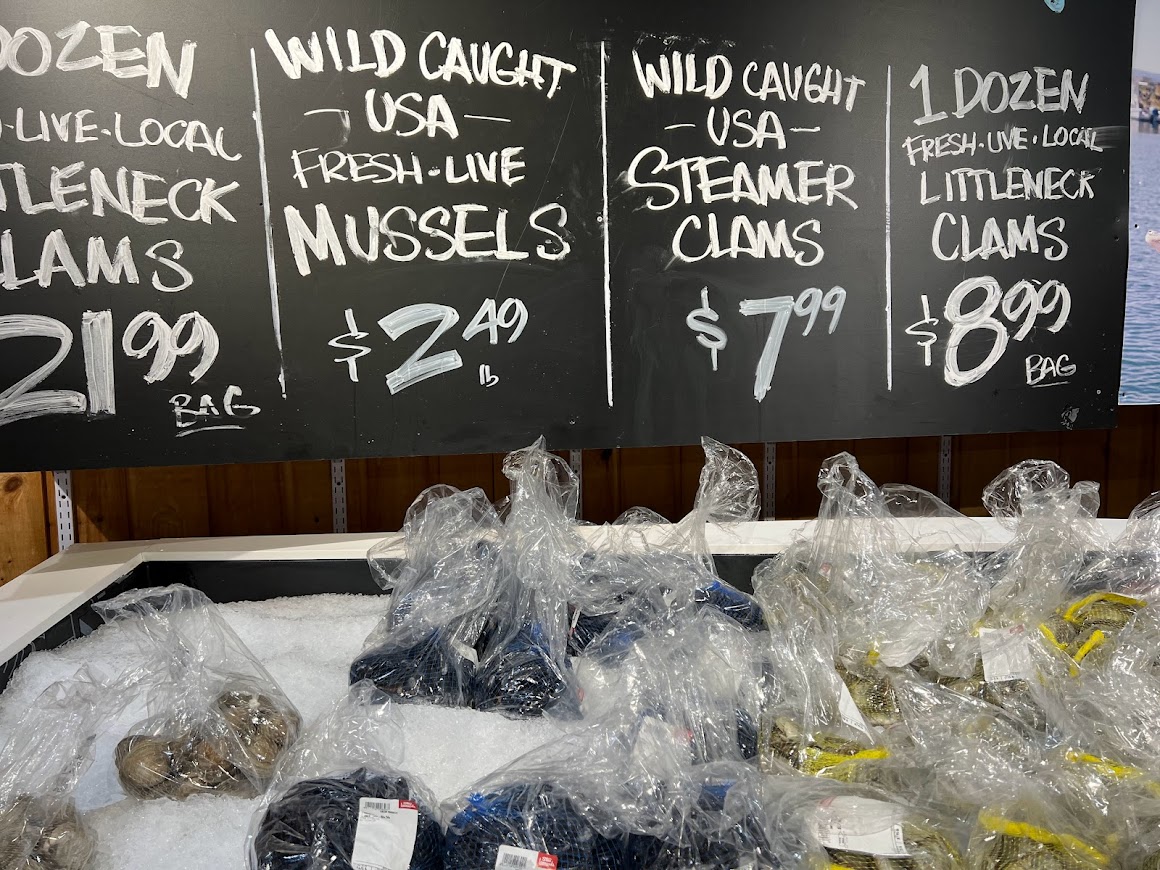 DOZEN
LIVE·LOCAL
TLENECK
LAMS
21 99
BAG
WILD CAUGHT
—USA—
FRESH·LIVE
MUSSELS
$2 49
lb
WILD CAUGHT
—USA—
STEAMER
CLAMS
$7 99
1 DOZEN
FRESH·LIVE·LOCAL
LITTLENECK
CLAMS
$8 99
BAG